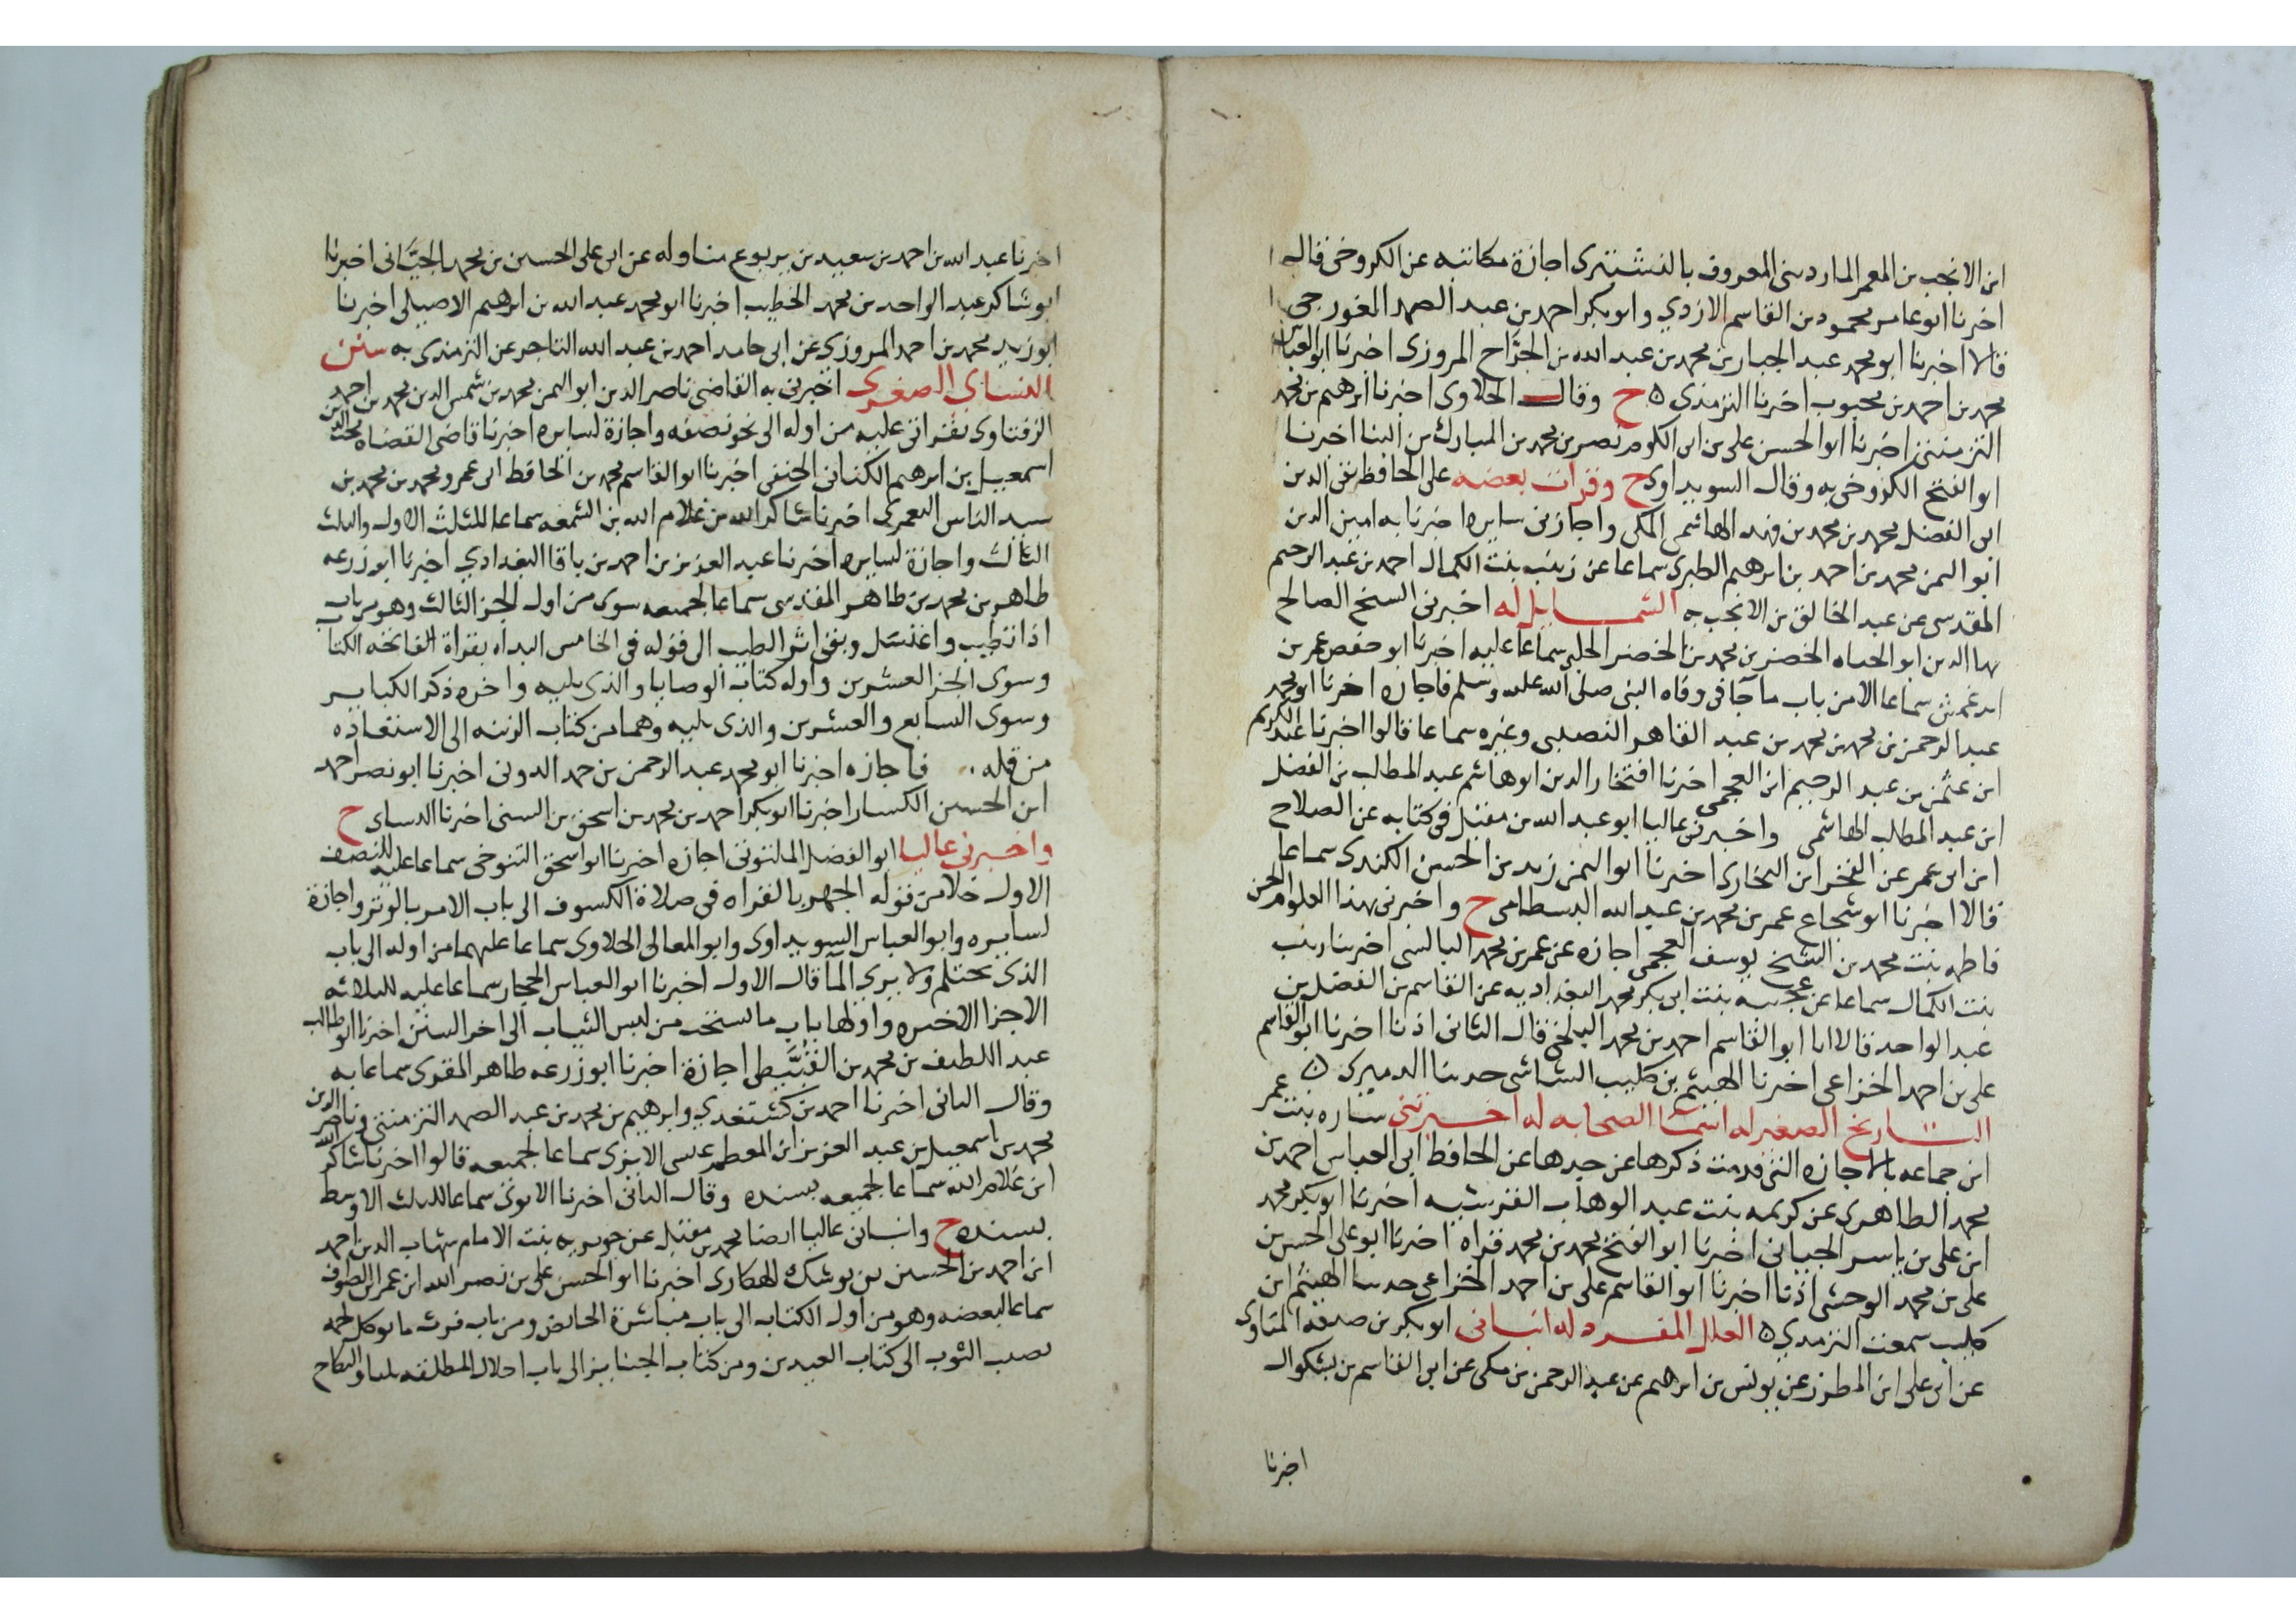 ابن الانجب بن المعمر الماردينى المعروف بالنشتبرى اجازة مكاتبه عن الكروخى قال
اخبرنا ابو عامر محمود بن القاسم الازدي وابو بكر احمد بن عبد الصمد الغورجى
قالا اخبرنا ابو محمد عبد الجبار بن محمد بن عبد الله بن الجرَّاح المروزى اخبرنا ابو العباس
محمد بن احمد بن محبوب اخبرنا الترمذي ه ح وقال الحلاوى اخبرنا ابرهيم بن محمد
التزمنتى اخبرنا ابو الحسن على بن ابى الكرم نصر بن محمد بن المبارك بن البنا اخبرنا
ابو الفتح الكروخى به وقال السويداوى ح وقرات بعضه على الحافظ تقى الدين
ابى الفضل محمد بن محمد بن فهد الهاشمى المكى واجازنى سايره اخبرنا به امين الدين
ابو اليمن محمد بن احمد بن ابرهيم الطبرى سماعا عن زينب بنت الكمال احمد بن عبد الرحيم
المقدسى عن عبد الخالق بن الانجب به الشمايل له اخبرنى الشيخ الصالح
بها الدين ابو الحياه الخضر بن محمد بن الخضر الحلبى سماعا عليه اخبرنا ابو حفص عمر بن
ايدغمش سماعا الا من باب ما جا فى وفاه النبى صلى الله عليه وسلم فاجازه اخبرنا ابو محمد
عبد الرحمن بن محمد بن محمد بن عبد القاهر النصيبى وغيره سماعا قالوا اخبرنا عبد الكريم
ابن عثمن بن عبد الرحيم ابن العجمى اخبرنا افتخار الدين ابو هاشم عبد المطلب بن الفضل
ابن عبد المطلب الهاشمى واخبرنى عاليا ابو عبد الله بن مقبل فى كتابه عن الصلاح
ابن ابى عمر عن الفخر ابن البخارى اخبرنا ابو اليمن زيد بن الحسن الكندى سماعا
قالا اخبرنا ابو شجاع عمر بن محمد بن عبد الله البسطامى ح واخبرتنى بهذا العلو ام الحسن
فاطمه بنت محمد بن الشيخ يوسف العجمى اجازه عن عمر بن محمد البالسى اخبرتنا زينب
بنت الكمال سماعا عن عجيبه بنت ابى بكر محمد البغداديه عن القاسم بن الفضل بن
عبد الواحد قالا انا ابو القاسم احمد بن محمد البلخى قال الثانى اذنا اخبرنا ابو القاسم
على بن احمد الخزاعى اخبرنا الهيثم بن كليب الشاشى حدثنا الترمذى ه
التاريخ الصغير له اسما الصحابه له اخبرتنى ساره بنت عمر
ابن جماعه بالاجازه التى قدمت ذكرها عن جدها عن الحافظ ابى العباس احمد بن
محمد الظاهرى عن كريمه بنت عبد الوهاب القرشيه اخبرنا ابو بكر محمد
ابن على بن ياسر الجيانى اخبرنا ابو الفتح محمد بن محمد قراه اخبرنا ابو على الحسن بن
على بن محمد الوحشى اذنا اخبرنا ابو القاسم على بن احمد الخزاعى حدثنا الهيثم ابن
كليب سمعت الترمذي ه العلل المفرد له انبانى ابو بكر بن صدقه المناوى
عن ابى على ابن المطرز عن يونس بن ابرهيم عن عبد الرحمن بن مكى عن ابى القاسم بن بشكوال
اخبرنا
اخبرنا عبد الله بن احمد بن سعيد بن يربوع مناوله عن ابى على الحسين بن محمد الجيَّانى اخبرنا
ابو شاكر عبد الواحد بن محمد الخطيب اخبرنا ابو محمد عبد الله بن ابرهيم الاصيلى اخبرنا
ابو زيد محمد بن احمد المروزى عن ابى حامد احمد بن عبد الله التاجر عن الترمذى به سنن
النساي الصغرى اخبرنى به القاضى ناصر الدين ابو اليمن محمد بن شمس الدين محمد بن احمد
الزفتاوى بقراتى عليه من اوله الى نحو نصفه واجازة لسايره اخبرنا قاضى القضاه مجد الدين
اسمعيل بن ابرهيم الكنانى الحنفى اخبرنا ابو القاسم محمد بن الحافظ ابى عمرو محمد بن محمد بن
سيد الناس اليعمرى اخبرنا شاكر الله بن غلام الله بن الشمعه سماعا للثلث الاول والثلث
الثالث واجازة لسايره اخبرنا عبد العزيز بن احمد بن باقا البغدادي اخبرنا ابو زرعه
طاهر بن محمد بن طاهر المقدسى سماعا لجميعه سوى من اول الجز الثالث وهو من باب
اذا تطيب واغتسل وبقى اثر الطيب الى قوله فى الخامس البداه بقراة الفاتحه الكتاب
وسوى الجز العشرين واوله كتاب الوصايا والذى يليه واخره ذكر الكباير
وسوى السابع والعشرين والذى يليه وهما من كتاب الزينه الى الاستعاذه
من قله فاجازه اخبرنا ابو محمد عبد الرحمن بن حمد الدونى اخبرنا ابو نصر احمد
ابن الحسين الكسار اخبرنا ابو بكر احمد بن محمد بن اسحق بن السنى اخبرنا النساى ح
واخبرنى عاليا ابو الفضل الملتوتى اجازه اخبرنا ابو اسحق التنوخى سماعا عليه للنصف
الاول خلا من قوله الجهر بالقراه فى صلاة الكسوف الى باب الامر بالوتر واجازة
لسايره وابو العباس السويداوى وابو المعالى الحلاوى سماعا عليهما من اوله الى باب
الذى يحتلم ولا يرى الما قال الاول اخبرنا ابو العباس الحجار سماعا عليه للثلاثه
الاجزا الاخيره واولها باب ما يستحب من لبس الثياب الى اخر السنن اخبرنا ابو طالب
عبد اللطيف بن محمد بن القُبَّيطى اجازة اخبرنا ابو زرعه طاهر المقدسى سماعا به
وقال الثانى اخبرنا احمد بن كشتغدي وابرهيم بن محمد بن عبد الصمد التزمنتى وناصر الدين
محمد بن اسمعيل بن عبد العزيز ابن المعظم عيسى الايوبى سماعا لجميعه قالوا اخبرنا شاكر الله
ابن غلام الله سماعا لجميعه بسنده وقال الثانى اخبرنا الايوبى سماعا للثلث الاوسط
بسنده ح وانبانى عاليا ايضا محمد بن مقبل عن جويريه بنت الامام شهاب الدين احمد
ابن احمد بن الحسين بن موشك الهكارى اخبرنا ابو الحسن على بن نصر الله ابن عمر ابن الصواف
سماعا لبعضه وهو من اول الكتاب الى باب مباشرة الحائض ومن باب فرث ما يوكل لحمه
يصيب الثوب الى كتاب العيدين ومن كتاب الجنايز الى باب احلال المطلقه ثلثا والنكاح